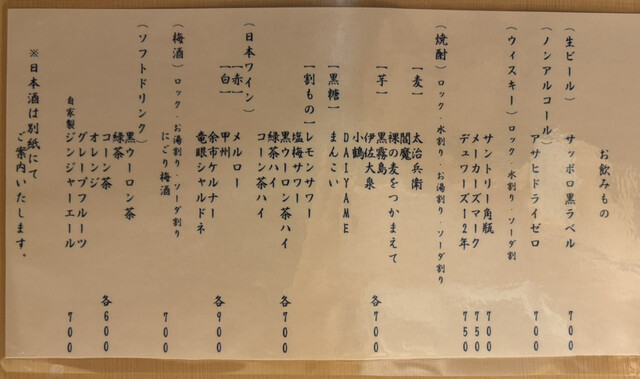 お飲みもの
（生ビール） サッポロ黒ラベル 700
（ノンアルコール） アサヒドライゼロ 700
（ウィスキー） ロック・水割り・ソーダ割
サントリー角瓶 700
メーカーズマーク 750
デュワーズ12年 750
（焼酎） ロック・水割り・お湯割り・ソーダ割り
【麦】 太治兵衛
閻魔
裸の麦をつかまえて
【芋】 黒霧島 各700
伊佐大泉
小鶴
DAIYAME
【黒糖】 まんこい
【割もの】 レモンサワー
塩梅サワー
黒ウーロン茶ハイ 各700
緑茶ハイ
コーン茶ハイ
（日本ワイン）
【赤】 メルロー
【白】 甲州 各900
余市ケルナー
竜眼シャルドネ
（梅酒） ロック・お湯割り・ソーダ割り
にごり梅酒 700
（ソフトドリンク）
黒ウーロン茶
緑茶
コーン茶 各600
オレンジ
グレープフルーツ
自家製ジンジャーエール 700
※日本酒は別紙にて
ご案内いたします。